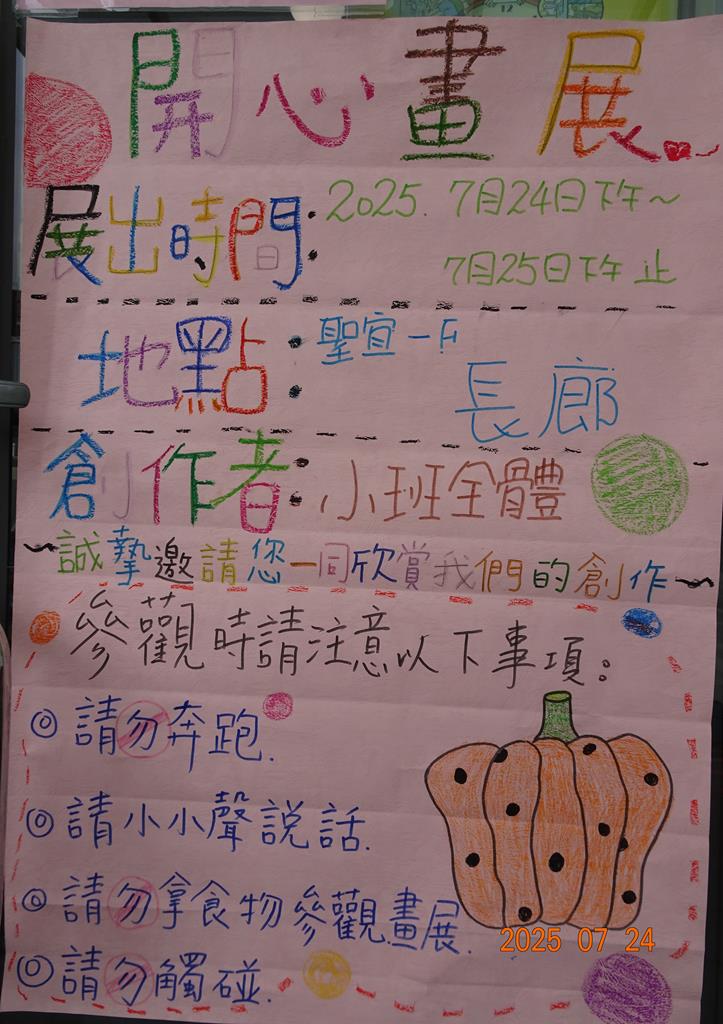 開心畫展
展出時間：2025. 7月24日下午～
7月25日下午止
地點：聖宣一F
長廊
創作者：小班全體
～誠摯邀請您一同欣賞我們的創作～
參觀時請注意以下事項：
◎請勿奔跑.
◎請小小聲説話.
◎請勿拿食物參觀畫展.
◎請勿觸碰.
2025 07 24